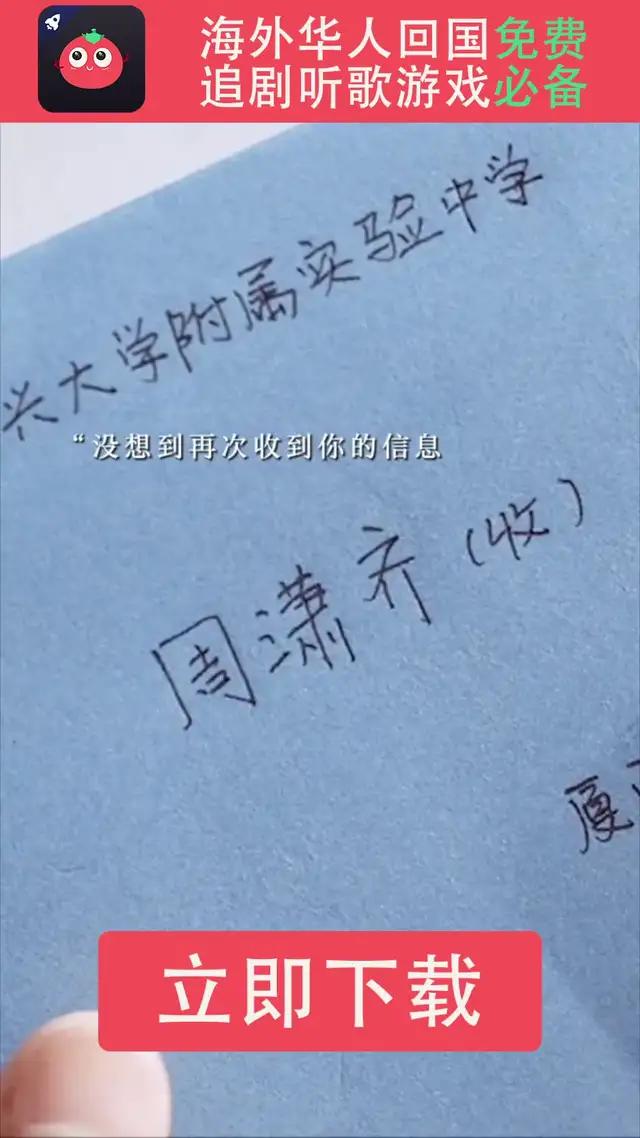 海外华人回国免费
追剧听歌游戏必备
兴大学附属实验中学
“没想到再次收到你的信息
周潇齐(收)
厦
立即下载